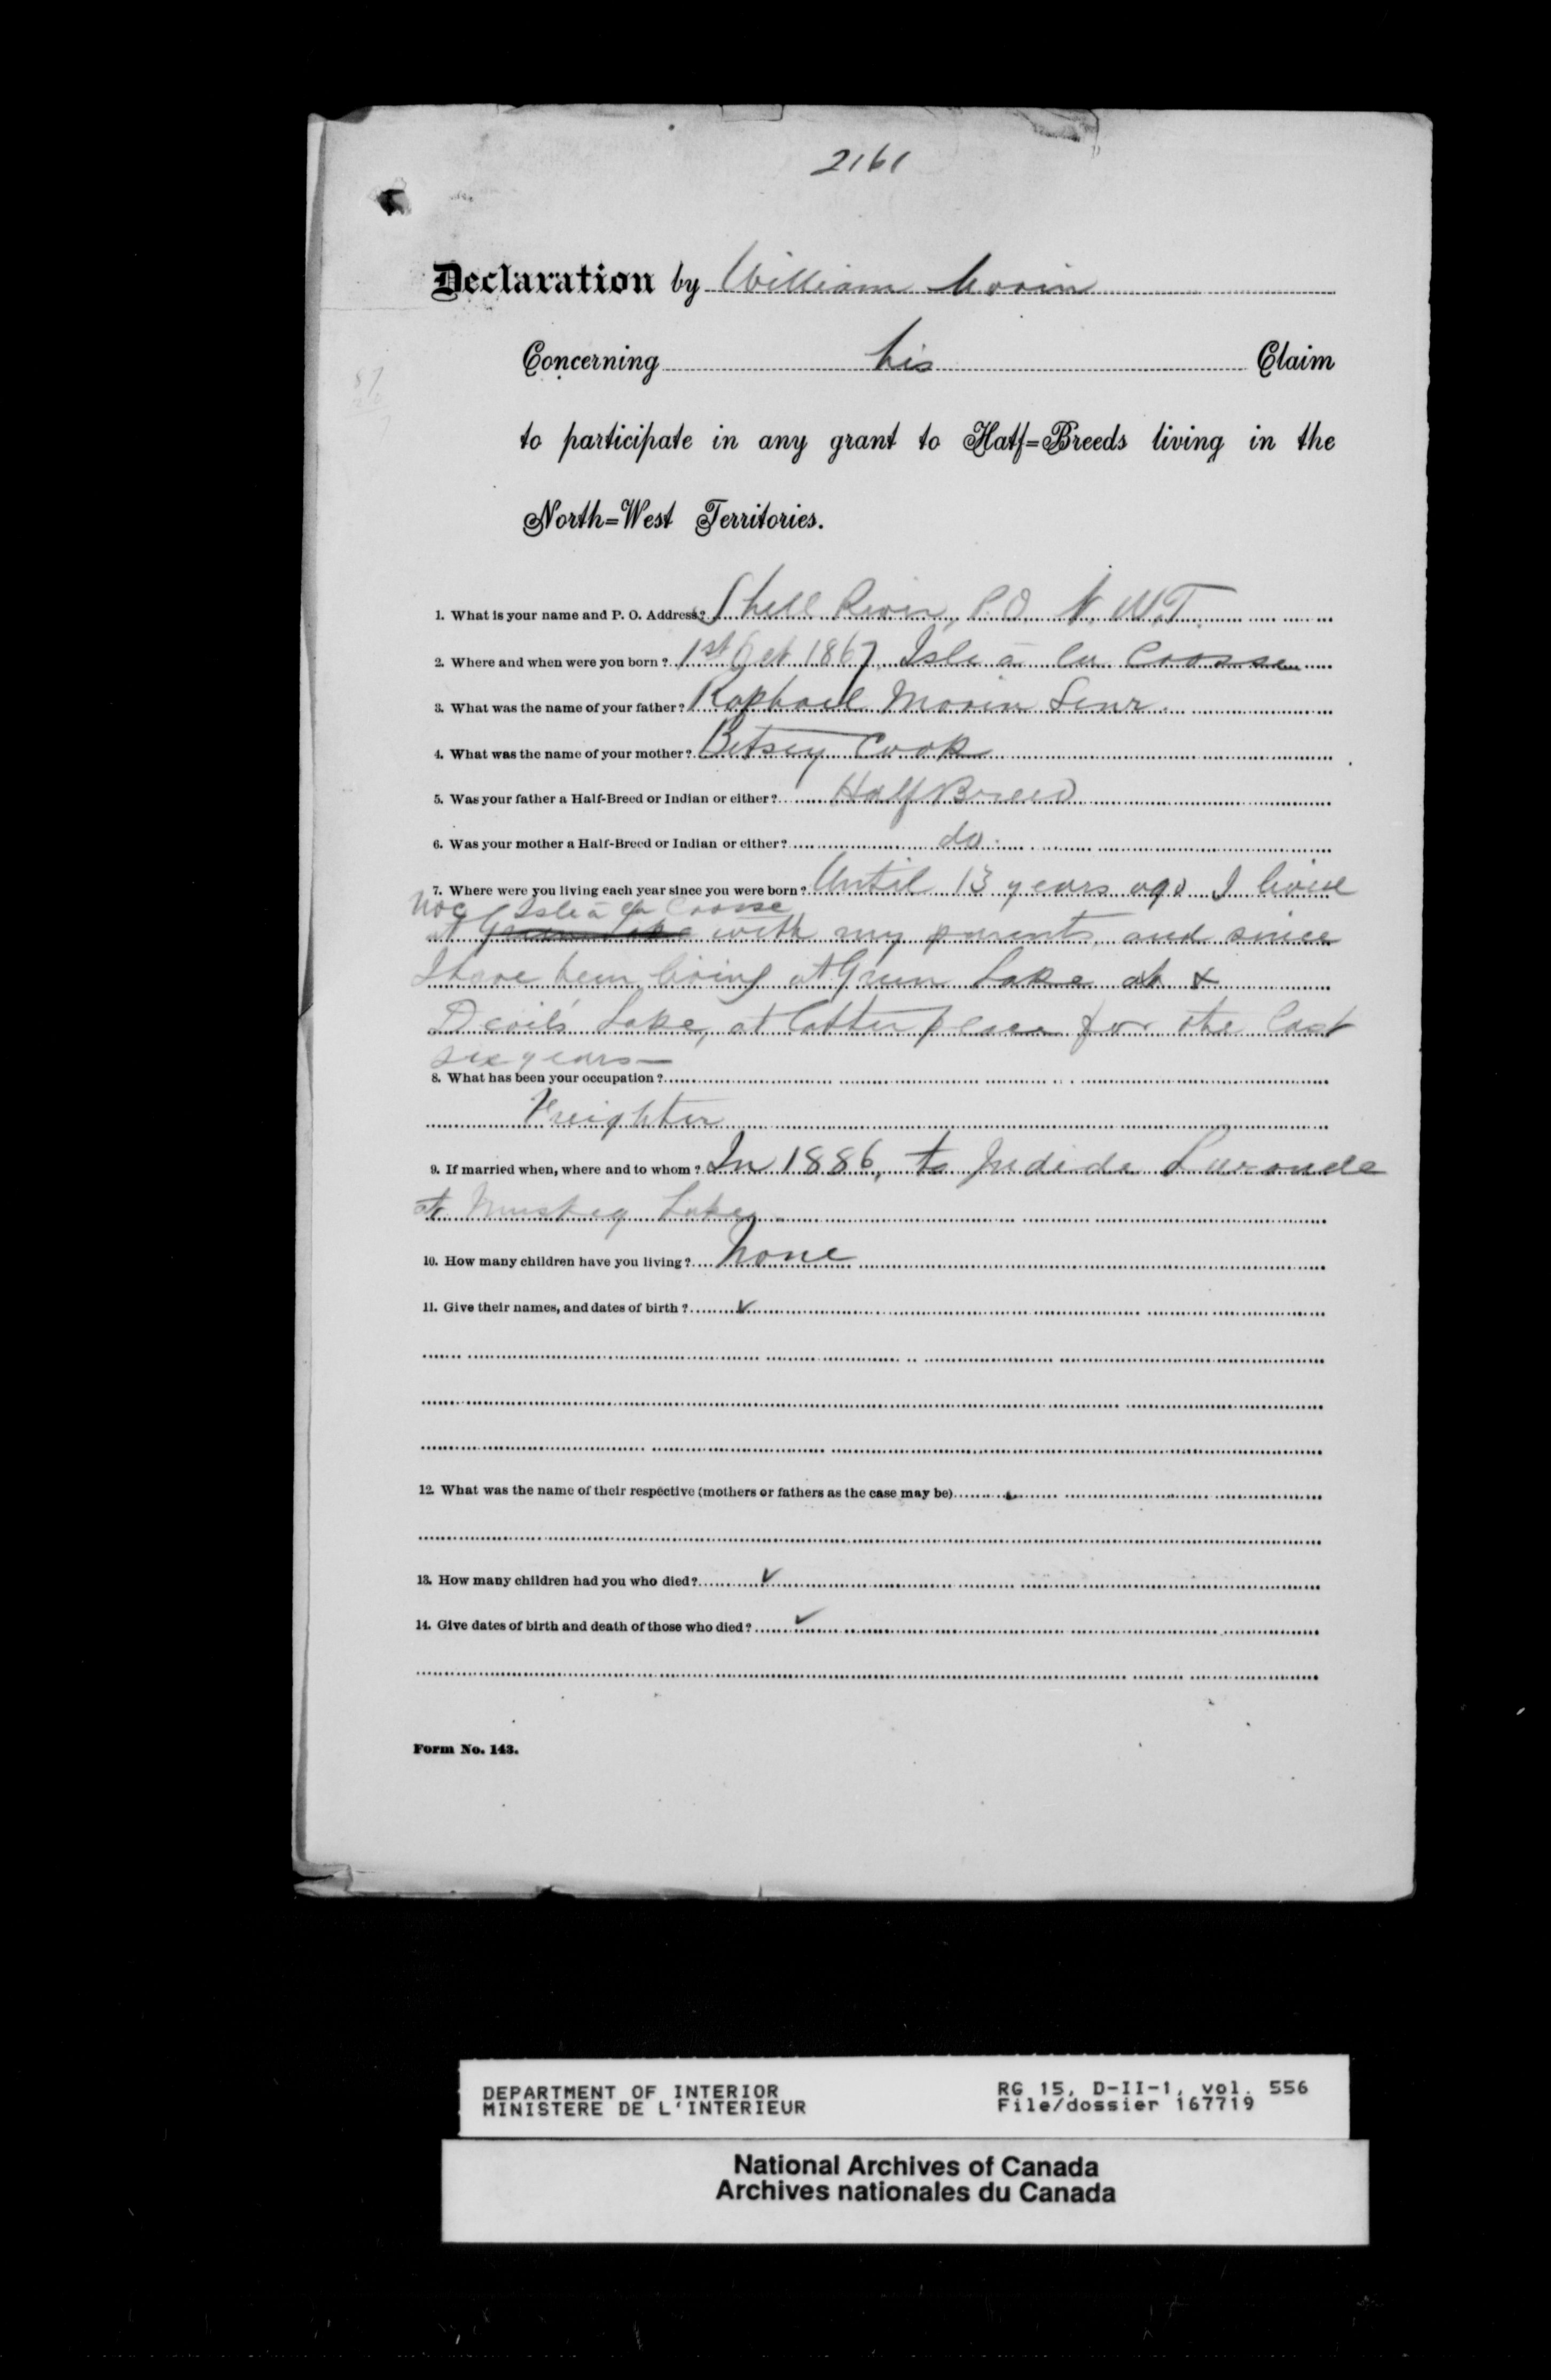 2161
Declaration by William Morin
Concerning his Claim
to participate in any grant to Half=Breeds living in the
North=West Territories.
1. What is your name and P. O. Address? Shell River, P.O. N.W.T.
2. Where and when were you born? 1st Oct 1867, Isle à la Crosse
3. What was the name of your father? Raphael Morin Senr.
4. What was the name of your mother? Betsey Cook
5. Was your father a Half-Breed or Indian or either? Half Breed
6. Was your mother a Half-Breed or Indian or either? do.
7. Where were you living each year since you were born? Until 13 years ago I lived
Isle à la Crosse
at Green Lake with my parents, and since
I have been living at Green Lake at &
Devil's Lake, at latter place for the last
six years—
8. What has been your occupation?
Freighter
9. If married when, where and to whom? In 1886, to Laronde
at Muskeg Lake
10. How many children have you living? None
11. Give their names, and dates of birth? ✓
12. What was the name of their respective (mothers or fathers as the case may be)
13. How many children had you who died? ✓
14. Give dates of birth and death of those who died? ✓
Form No. 143.
DEPARTMENT OF INTERIOR RG 15, D-II-1, vol. 556
MINISTERE DE L'INTERIEUR File/dossier 167719
National Archives of Canada
Archives nationales du Canada